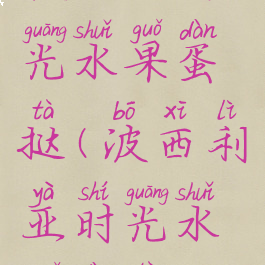 guāng shuǐ guǒ dàn
光水果蛋
tà bō xī lì
挞(波西利
yà shí guāng shuǐ
亚时光水